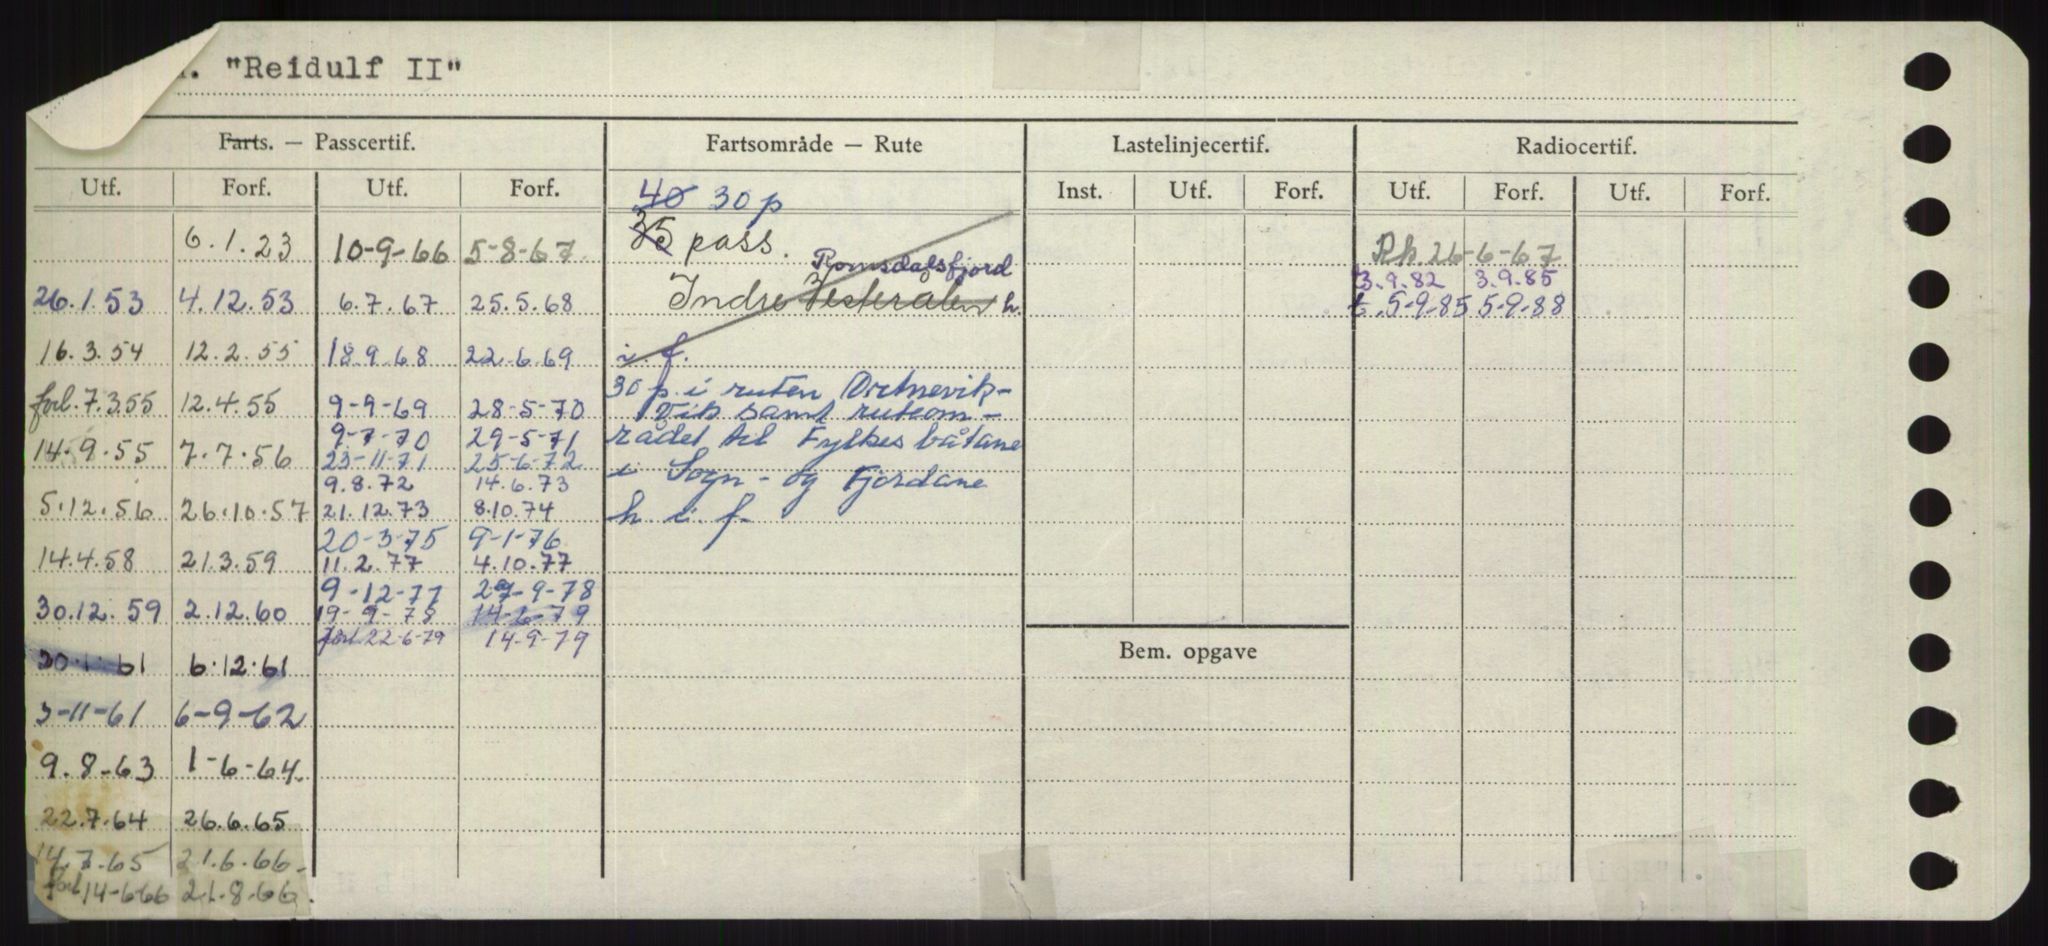 . "Reidulf II"
Farts. — Passcertif. Fartsområde — Rute Lastelinjecertif. Radiocertif.
Utf. Forf. Utf. Forf. Inst. Utf. Forf. Utf. Forf. Utf. Forf.
40 30 p
6.1.23 10-9-66 5-8-67 35 pass. Rh 26-6-67
Romsdalsfjord 3.9.82 3.9.85
26.1.53 4.12.53 6.7.67 25.5.68 Indre Vesterålen h. t. 5-9-85 5-9-88
16.3.54 12.2.55 18.9.68 22.6.69 i. f.
30 p. i ruten Ortnevik-
forl. 7.3.55 12.4.55 9-9-69 28-5-70 Vik samt ruteom-
9-7-70 29-5-71 rådet til Fylkesbåtane
14.9.55 7.7.56 23-11-71 25-6-72
9.8.72 14.6.73 i Sogn- og Fjordane
5.12.56 26.10.57 21.12.73 8.10.74 h. i. f.
20-3-75 9-1-76
14.4.58 21.3.59 11.2.77 4.10.77
9-12-77 27-9-78
30.12.59 2.12.60 19-9-78 14-6-79
forl 22-6-79 14-9-79
20.1.61 6.12.61 Bem. opgave
3-11-61 6-9-62
9.8.63 1-6-64
22.7.64 26.6.65
14.7.65 21.6.66
forl 14-6-66 21.8.66.